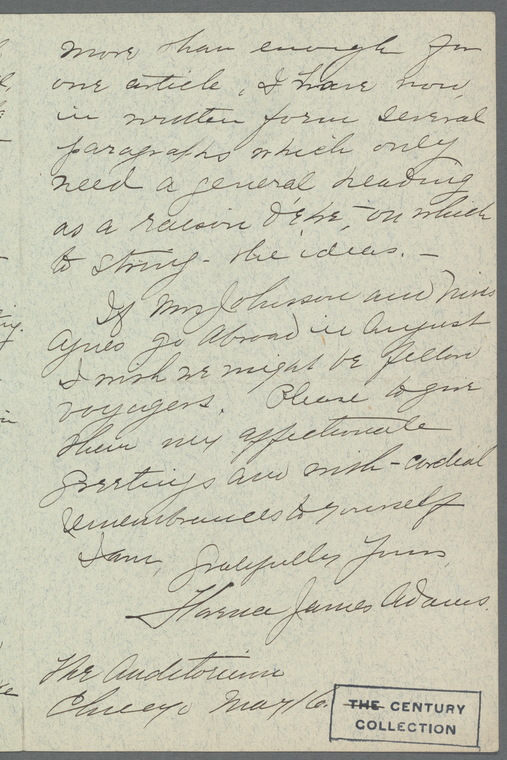 more than enough for
one article, I have now,
in written form several
paragraphs which only
need a general heading
as a raison d'être, on which
to string - the ideas. -
If Mrs Johnson and Miss
Agnes go abroad in August
I wish we might be fellow
voyagers. Please to give
them my affectionate
greetings and with - cordial
remembrances to yourself
I am, gratefully yours,
Florence James Adams.
The Auditorium
Chicago May 16.
THE CENTURY
COLLECTION